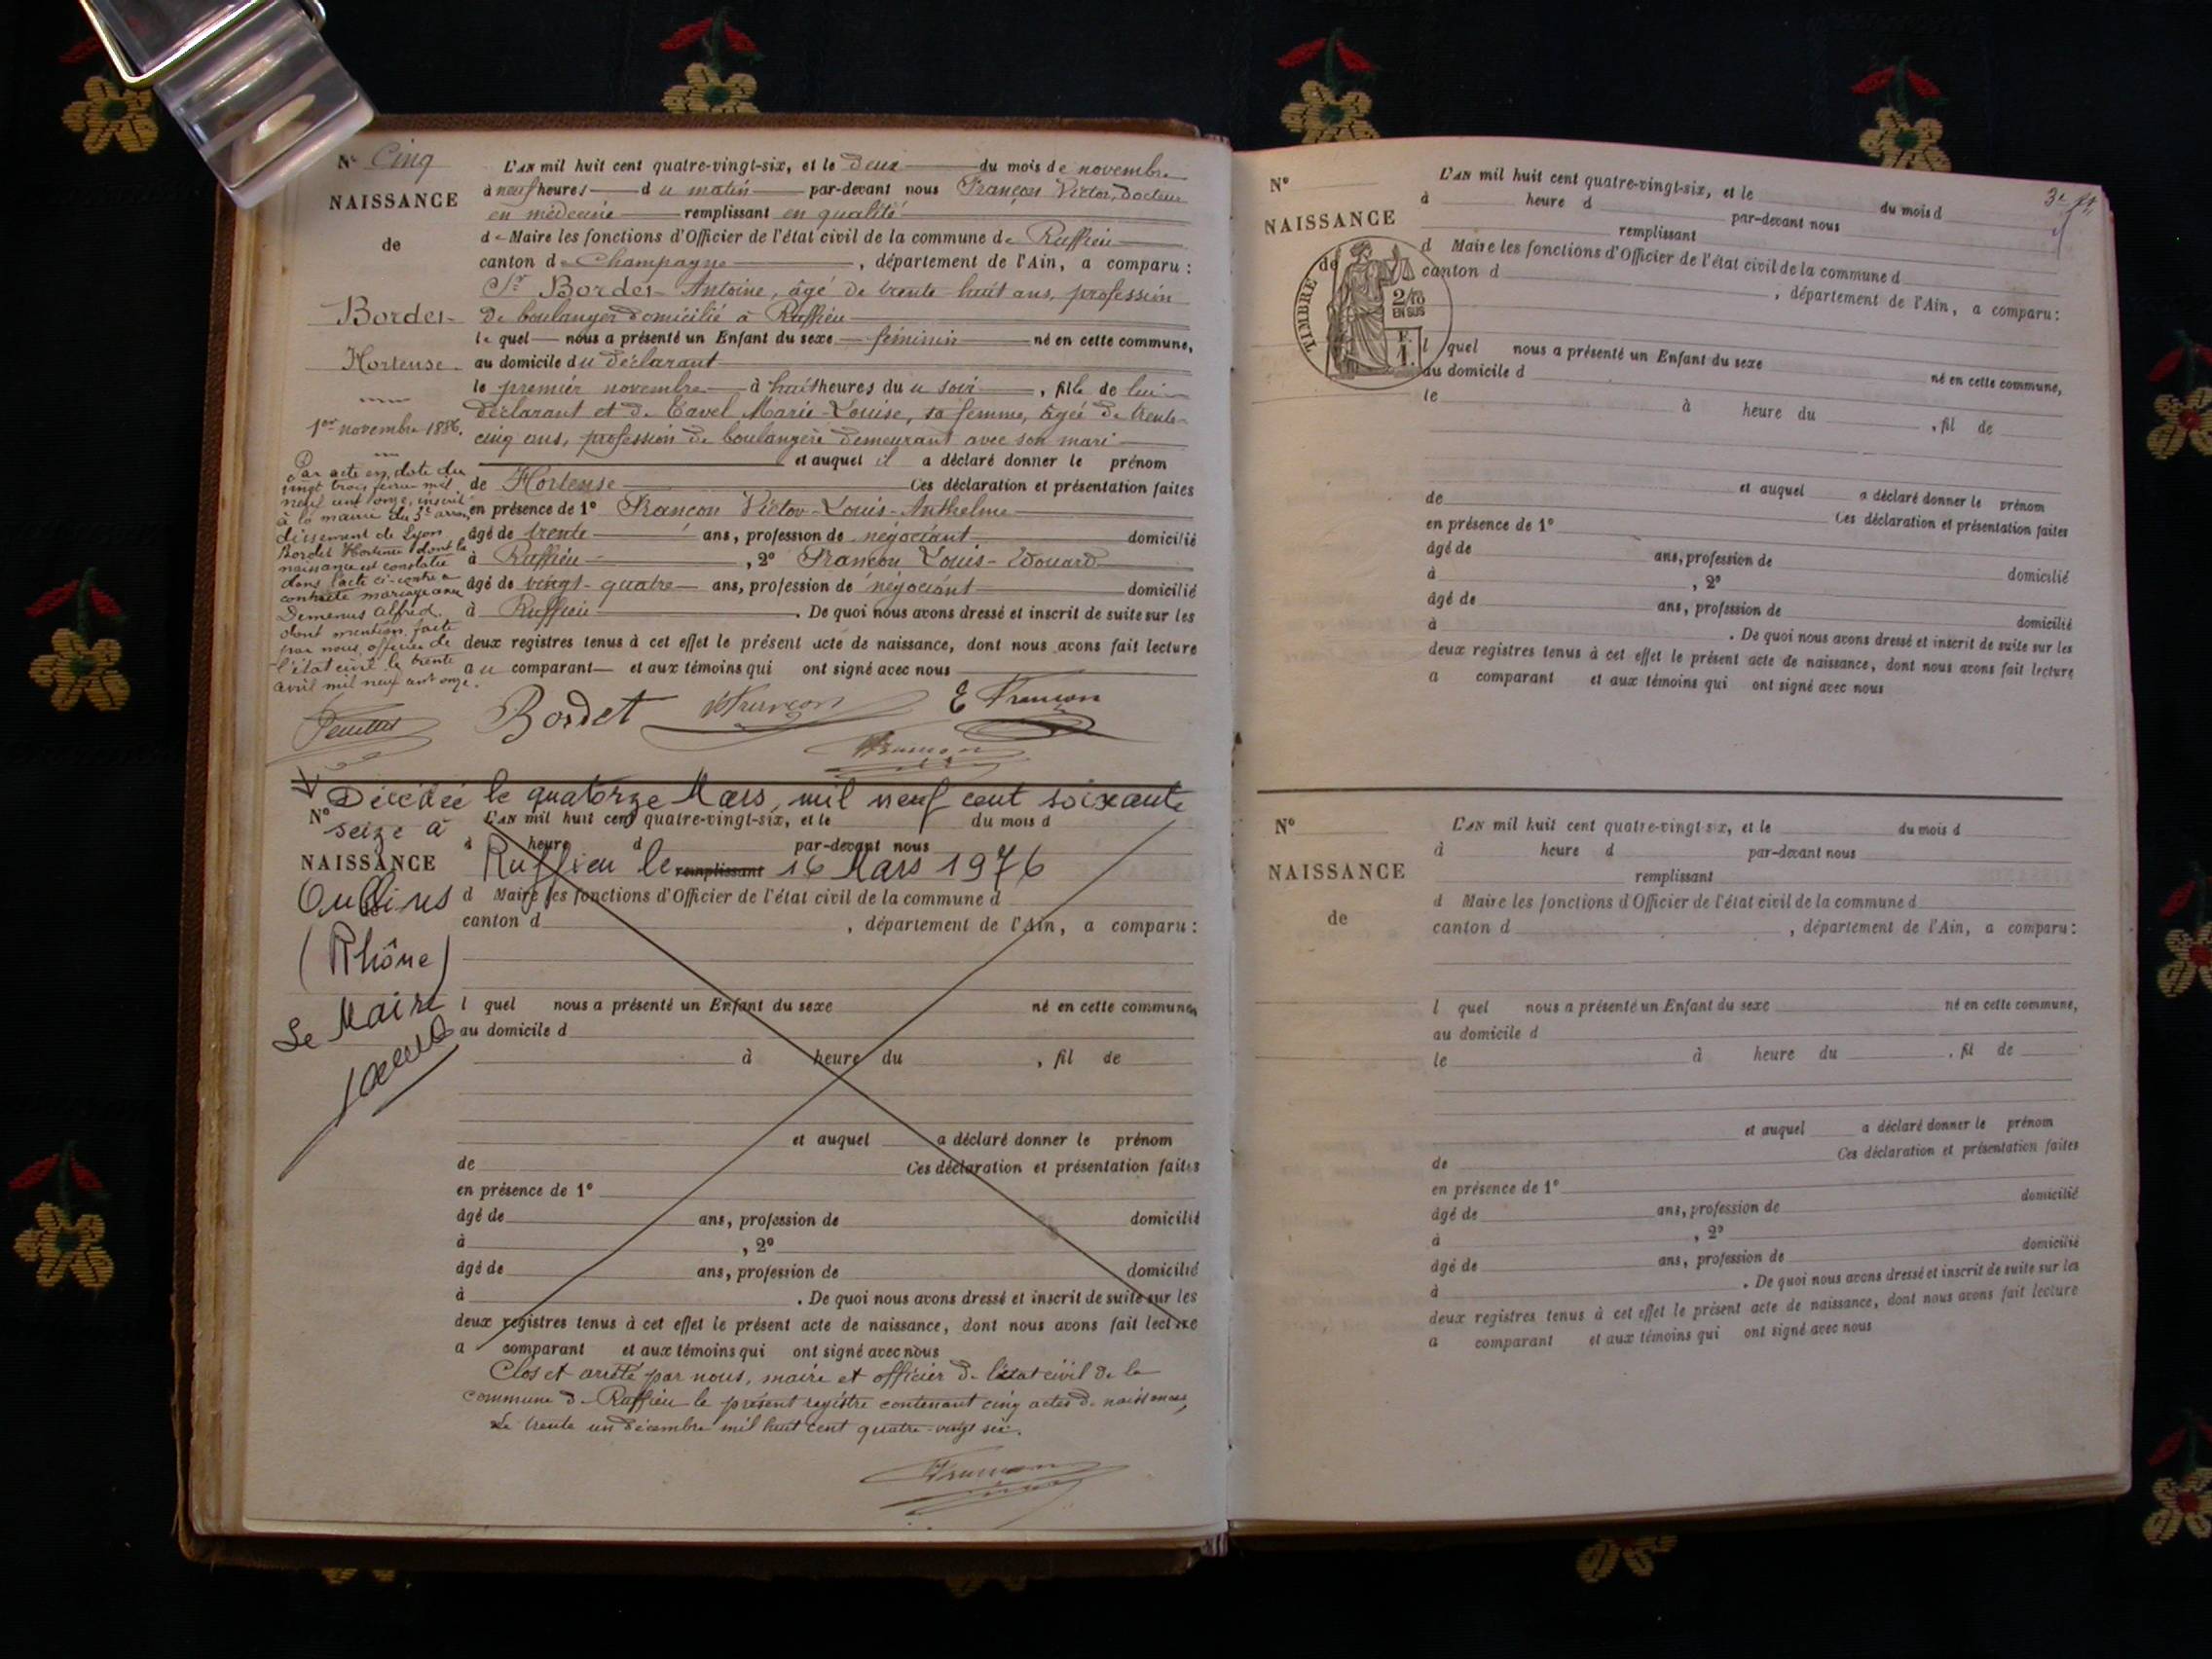 N° Cinq
NAISSANCE
de
Bordet
Hortense
1er novembre 1886.
Par acte en date du
vingt trois février mil
neuf cent onze, inscrit
à la mairie du 3e arron
dissement de Lyon
Bordet Hortense dont la
naissance est constatée
dans l'acte ci-contre a
contracté mariage avec
Demenus Alfred.
dont mention faite
par nous officier de
l'état civil le trente
avril mil neuf cent onze.
L'AN mil huit cent quatre-vingt-six, et le deux du mois de novembre
à neuf heures du matin par-devant nous Françon Victor, Docteur
en médecine remplissant en qualité
de Maire les fonctions d'Officier de l'état civil de la commune de Ruffieu
canton de Champagne, département de l'Ain, a comparu :
Sr Bordet Antoine, âgé de trente-huit ans, profession
de boulanger domicilié à Ruffieu
lequel nous a présenté un Enfant du sexe féminin né en cette commune,
au domicile du déclarant
le premier novembre à huit heures du soir, fille de lui
déclarant et de Tavel Marie-Louise, sa femme, âgée de trente-
cinq ans, profession de boulangère demeurant avec son mari
et auquel il a déclaré donner le prénom
de Hortense Ces déclaration et présentation faites
en présence de 1° Françon Victor-Louis-Anthelme
âgé de trente ans, profession de négociant domicilié
à Ruffieu, 2° Françon Louis-Edouard
âgé de vingt-quatre ans, profession de négociant domicilié
à Ruffieu. De quoi nous avons dressé et inscrit de suite sur les
deux registres tenus à cet effet le présent acte de naissance, dont nous avons fait lecture
au comparant et aux témoins qui ont signé avec nous
Bordet VFrançon E Françon
Françon
Décédée le quatorze Mars, mil neuf cent soixante
seize à
Oullins
(Rhône)
Ruffieu le 16 Mars 1976
Le Maire
N°
NAISSANCE
de
L'AN mil huit cent quatre-vingt-six, et le du mois d
à heure d par-devant nous
remplissant
d Maire les fonctions d'Officier de l'état civil de la commune d
canton d , département de l'Ain, a comparu :
l quel nous a présenté un Enfant du sexe né en cette commune,
au domicile d
à heure du , fil de
et auquel a déclaré donner le prénom
de Ces déclaration et présentation faites
en présence de 1°
âgé de ans, profession de domicilié
à , 2°
âgé de ans, profession de domicilié
à . De quoi nous avons dressé et inscrit de suite sur les
deux registres tenus à cet effet le présent acte de naissance, dont nous avons fait lecture
a comparant et aux témoins qui ont signé avec nous
Clos et arrêté par nous, maire et officier de l'état civil de la
commune de Ruffieu le présent registre contenant cinq actes de naissances,
Le trente un décembre mil huit cent quatre-vingt six.
Françon
N°
NAISSANCE
de
TIMBRE
2/10
EN SUS
L'AN mil huit cent quatre-vingt-six, et le du mois d
à heure d par-devant nous
remplissant
d Maire les fonctions d'Officier de l'état civil de la commune d
canton d , département de l'Ain, a comparu :
l quel nous a présenté un Enfant du sexe né en cette commune,
au domicile d
le à heure du , fil de
et auquel a déclaré donner le prénom
de Ces déclaration et présentation faites
en présence de 1°
âgé de ans, profession de domicilié
à , 2°
âgé de ans, profession de domicilié
à . De quoi nous avons dressé et inscrit de suite sur les
deux registres tenus à cet effet le présent acte de naissance, dont nous avons fait lecture
a comparant et aux témoins qui ont signé avec nous
N°
NAISSANCE
de
L'AN mil huit cent quatre-vingt-six, et le du mois d
à heure d par-devant nous
remplissant
d Maire les fonctions d'Officier de l'état civil de la commune d
canton d , département de l'Ain, a comparu :
l quel nous a présenté un Enfant du sexe né en cette commune,
au domicile d
le à heure du , fil de
et auquel a déclaré donner le prénom
de Ces déclaration et présentation faites
en présence de 1°
âgé de ans, profession de domicilié
à , 2°
âgé de ans, profession de domicilié
à . De quoi nous avons dressé et inscrit de suite sur les
deux registres tenus à cet effet le présent acte de naissance, dont nous avons fait lecture
a comparant et aux témoins qui ont signé avec nous